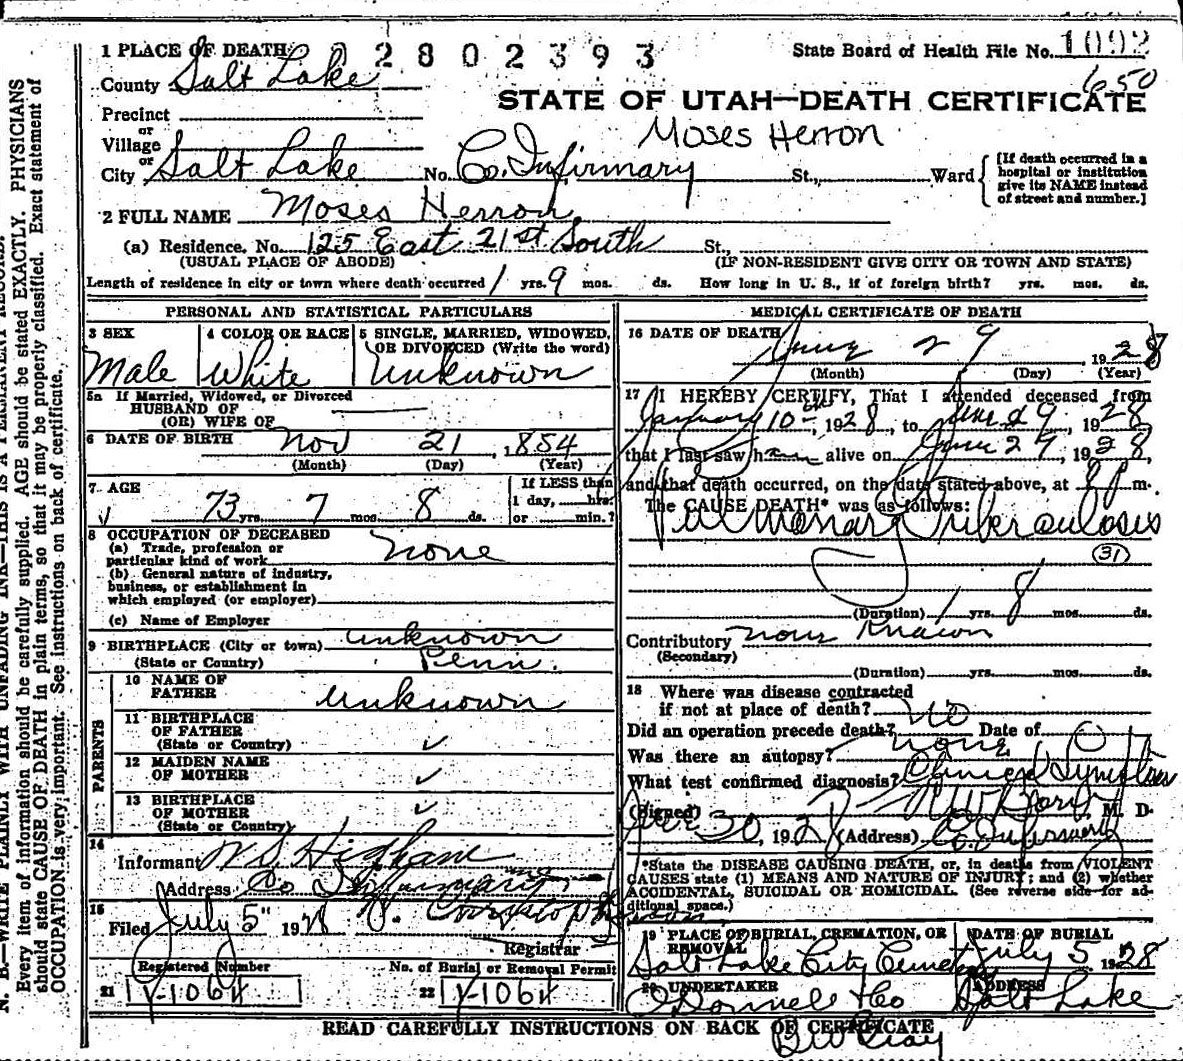 1 PLACE OF DEATH 0 2 8 0 2 3 9 3 State Board of Health File No. 1092
650
County Salt Lake
STATE OF UTAH—DEATH CERTIFICATE
Precinct
Moses Herron
or
Village
or
City Salt Lake No. Co. Infirmary St., Ward
[If death occurred in a
hospital or institution
give its NAME instead
of street and number.]
2 FULL NAME Moses Herron
(a) Residence. No. 125 East 21st South St.,
(USUAL PLACE OF ABODE) (IF NON-RESIDENT GIVE CITY OR TOWN AND STATE)
Length of residence in city or town where death occurred 1 yrs. 9 mos. ds. How long in U. S., if of foreign birth? yrs. mos. ds.
PERSONAL AND STATISTICAL PARTICULARS
3 SEX 4 COLOR OR RACE 5 SINGLE, MARRIED, WIDOWED,
OR DIVORCED (Write the word)
Male White Unknown
5a If Married, Widowed, or Divorced
HUSBAND OF
(OR) WIFE OF
6 DATE OF BIRTH Nov 21, 1854
(Month) (Day) (Year)
7 AGE 73 yrs. 7 mos. 8 ds.
If LESS than
1 day, hrs.
or min.?
8 OCCUPATION OF DECEASED
(a) Trade, profession or
particular kind of work none
(b) General nature of industry,
business, or establishment in
which employed (or employer)
(c) Name of Employer
9 BIRTHPLACE (City or town) unknown
(State or Country) Penn.
PARENTS
10 NAME OF
FATHER unknown
11 BIRTHPLACE
OF FATHER
(State or Country) ✓
12 MAIDEN NAME
OF MOTHER ✓
13 BIRTHPLACE
OF MOTHER ✓
(State or Country)
14
Informant Higham
Address Co Infirmary
15
Filed July 5" 1928
Registrar
Registered Number No. of Burial or Removal Permit
21 Y-1064 22 Y-1064
MEDICAL CERTIFICATE OF DEATH
16 DATE OF DEATH June 29 1928
(Month) (Day) (Year)
17 I HEREBY CERTIFY, That I attended deceased from
January 10th, 1928, to June 29, 1928
that I last saw him alive on June 29, 1928,
and that death occurred, on the date stated above, at 8 P m.
The CAUSE DEATH* was as follows:
Pulmonary Tuberculosis
(31)
(Duration) 1 yrs. 8 mos. ds.
Contributory none Known
(Secondary)
(Duration) yrs. mos. ds.
18 Where was disease contracted
if not at place of death?
Did an operation precede death? no Date of
Was there an autopsy? none
What test confirmed diagnosis? Clinical Symptoms
(Signed) M. D.
June 30, 1928 (Address) Co. Infirmary
*State the DISEASE CAUSING DEATH, or, in deaths from VIOLENT
CAUSES state (1) MEANS AND NATURE OF INJURY; and (2) whether
ACCIDENTAL, SUICIDAL OR HOMICIDAL. (See reverse side for ad-
ditional space.)
19 PLACE OF BURIAL, CREMATION, OR REMOVAL DATE OF BURIAL
Salt Lake City Cemetery July 5 1928
20 UNDERTAKER ADDRESS
O'Donnell & Co Salt Lake
READ CAREFULLY INSTRUCTIONS ON BACK OF CERTIFICATE
N. B.—WRITE PLAINLY WITH UNFADING INK—THIS IS A PERMANENT RECORD.
Every item of information should be carefully supplied. AGE should be stated EXACTLY. PHYSICIANS
should state CAUSE OF DEATH in plain terms, so that it may be properly classified. Exact statement of
OCCUPATION is very important. See instructions on back of certificate.